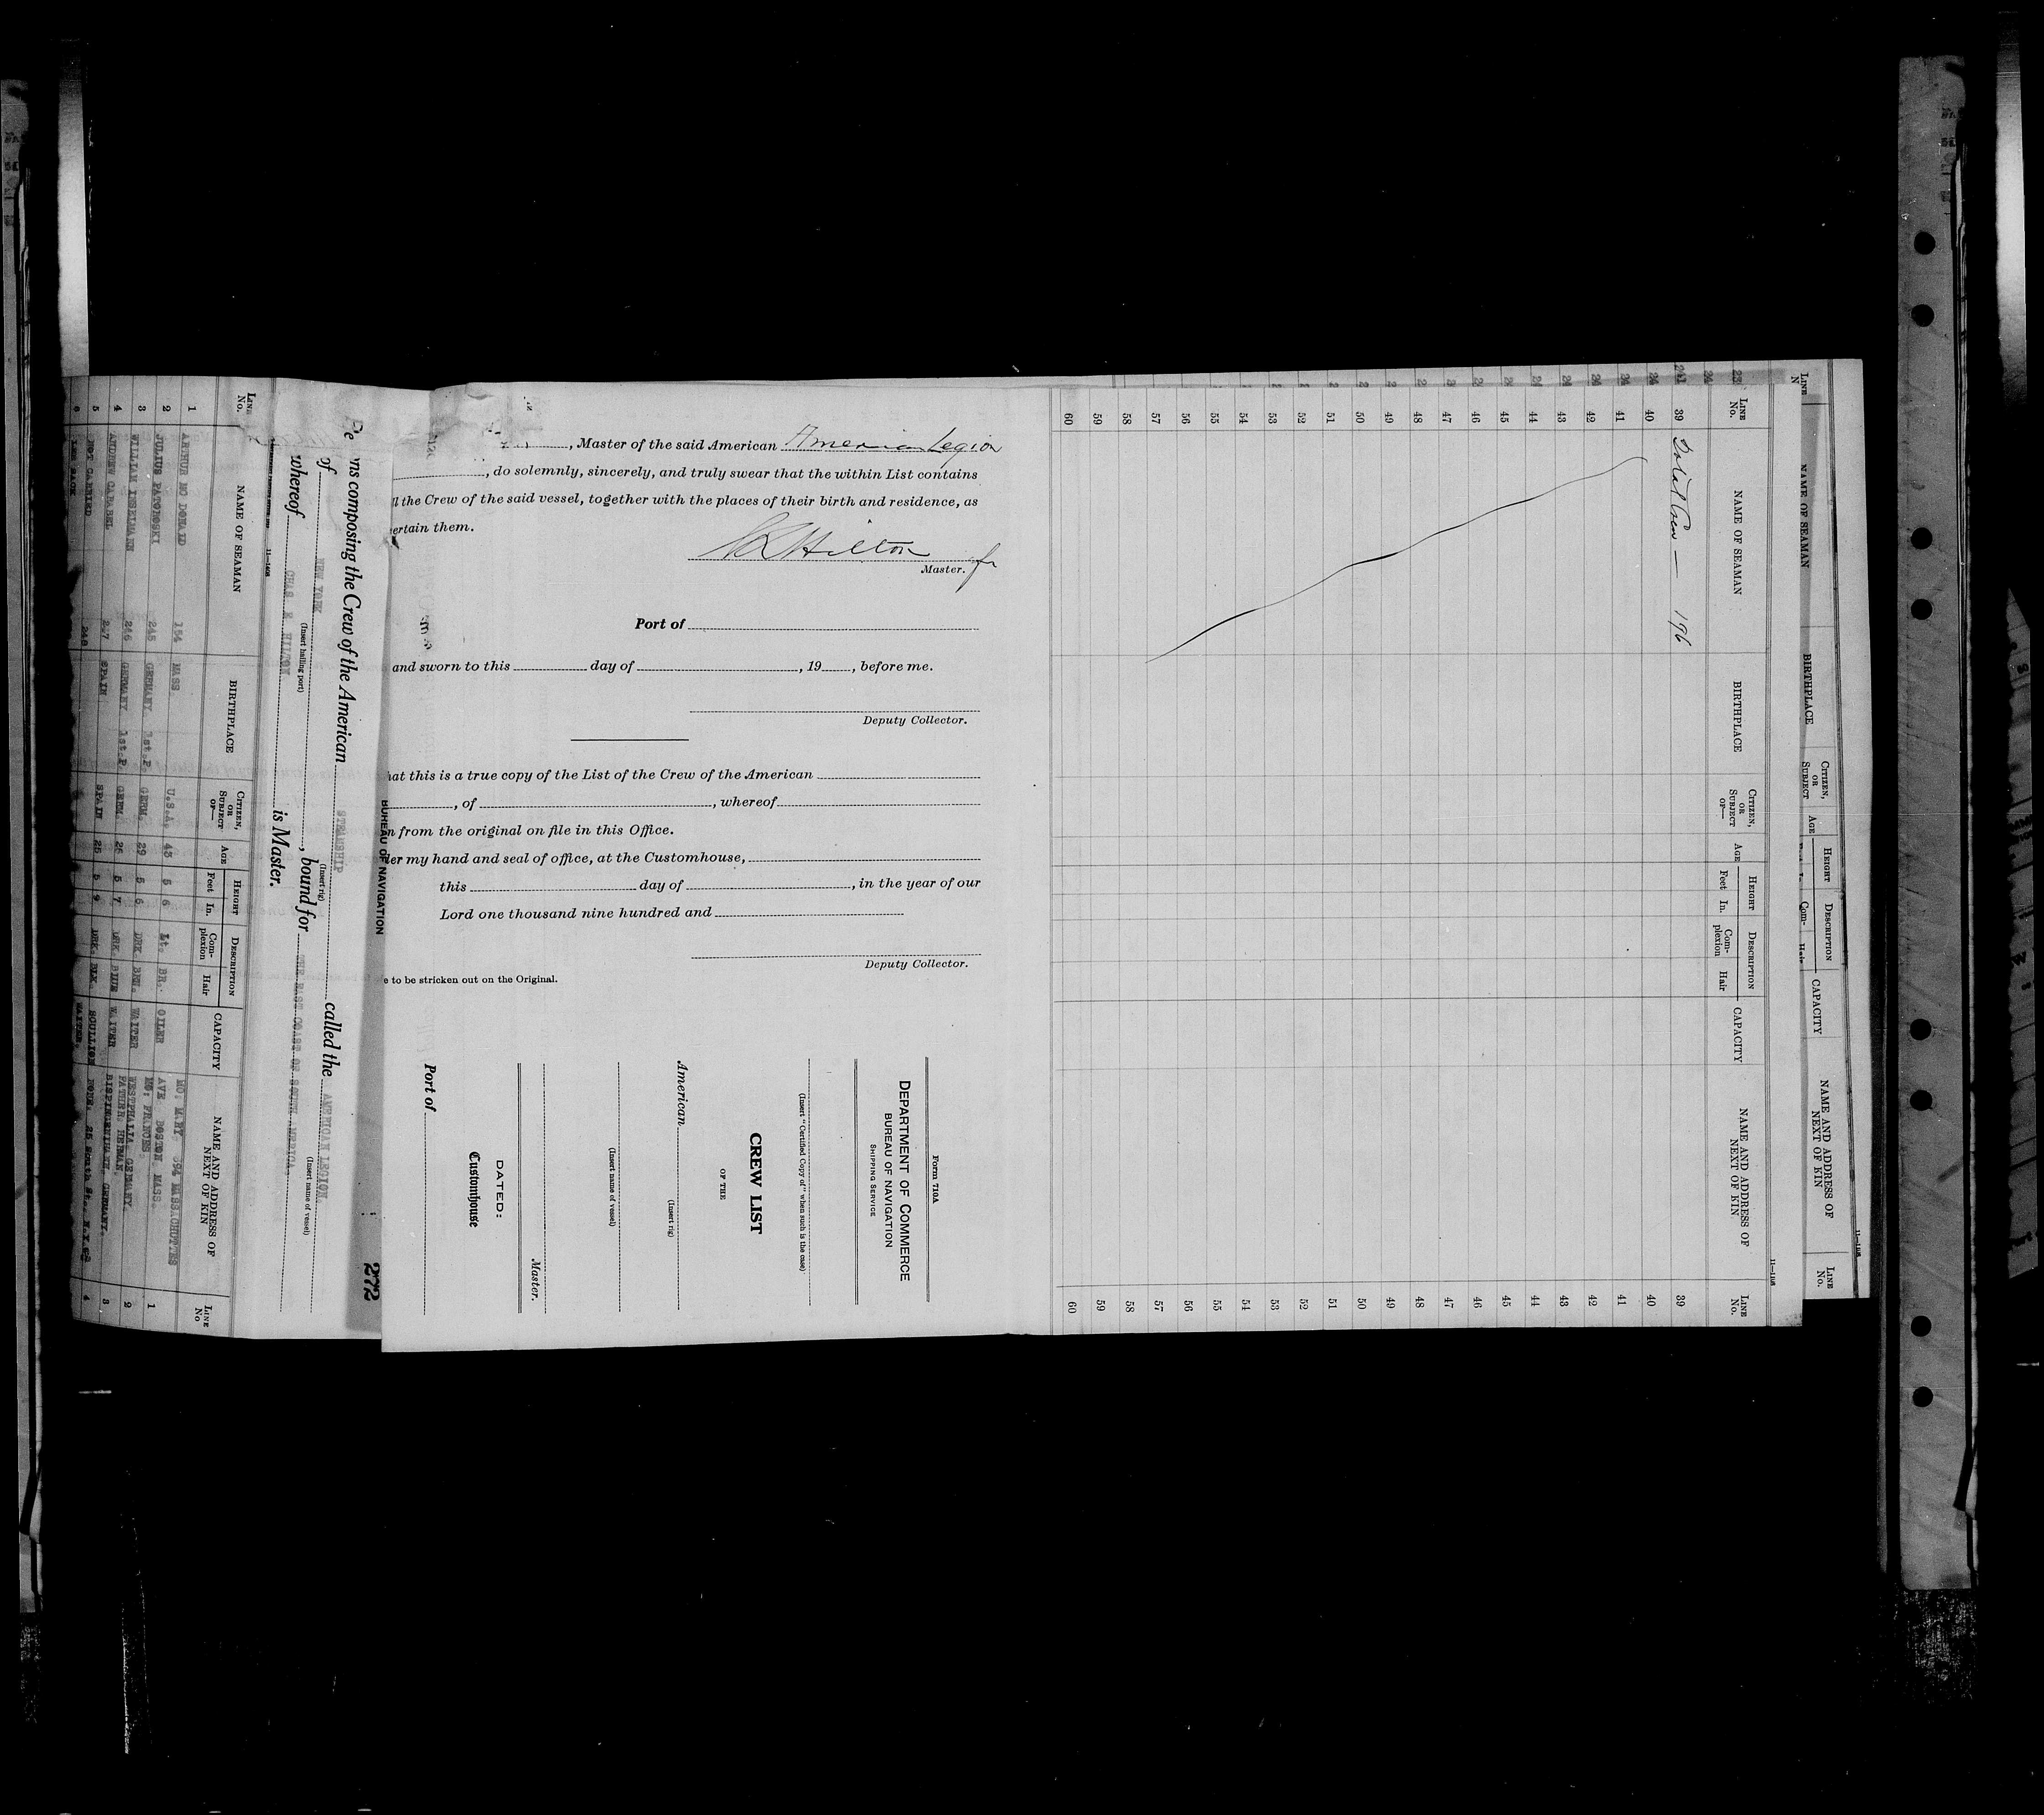 Master of the said American American Legion
, do solemnly, sincerely, and truly swear that the within List contains
the Crew of the said vessel, together with the places of their birth and residence, as
ertain them.
Hilton
Master.
Port of
and sworn to this day of , 19 , before me.
Deputy Collector.
hat this is a true copy of the List of the Crew of the American
, of , whereof
from the original on file in this Office.
der my hand and seal of office, at the Customhouse,
this day of , in the year of our
Lord one thousand nine hundred and
Deputy Collector.
e to be stricken out on the Original.
Form 710A
DEPARTMENT OF COMMERCE
BUREAU OF NAVIGATION
SHIPPING SERVICE
(Insert "Certified Copy of" when such is the case)
CREW LIST
OF THE
American
(Insert rig)
(Insert name of vessel)
Master.
DATED:
Customhouse
Port of
BUREAU OF NAVIGATION
272
ns composing the Crew of the American STEAMSHIP called the AMERICAN LEGION.
(Insert rig) (Insert name of vessel)
of NEW YORK , bound for THE EAST COAST OF SOUTH AMERICA.
(Insert hailing port)
whereof CHAS. E. HILTON is Master.
LINE No. NAME OF SEAMAN BIRTHPLACE CITIZEN, OR SUBJECT OF— AGE HEIGHT Feet In. DESCRIPTION Complexion Hair CAPACITY NAME AND ADDRESS OF NEXT OF KIN LINE No
1 ARTHUR MC DONALD 154 MASS. U.S.A. 43 5 6 Lt. BR. OILER MO: MARY 394 MASSACHUTTES AVE. BOSTON, MASS. 1
2 JULIUS PATOROSKI 245 GERMANY 1st.P. GERM. 29 5 6 DRK. BRN. WAITER MO: FRANCES. WESTPHALIA, GERMANY. 2
3 WILLIAM INSELMANN 246 GERMANY 1st.P. GERM. 26 5 7 DRK. WAITER FATHER: HERMAN. GERMANY. 3
4 ANDREW CARABEL 247 SPAIN SPAIN 25 5 9 DRK. BLK. SCULLION NONE. 25 South St. N.Y. 4
5 NOT CARRIED 248 WAITER.
6
LINE No. NAME OF SEAMAN BIRTHPLACE CITIZEN, OR SUBJECT OF— AGE HEIGHT Feet In. DESCRIPTION Complexion Hair CAPACITY NAME AND ADDRESS OF NEXT OF KIN LINE No.
39 Total Crew — 196 39
40 40
41 41
42 42
43 43
44 44
45 45
46 46
47 47
48 48
49 49
50 50
51 51
52 52
53 53
54 54
55 55
56 56
57 57
58 58
59 59
60 60
11—1116
NAME OF SEAMAN BIRTHPLACE CITIZEN, OR SUBJECT AGE HEIGHT DESCRIPTION CAPACITY NAME AND ADDRESS OF NEXT OF KIN LINE No.